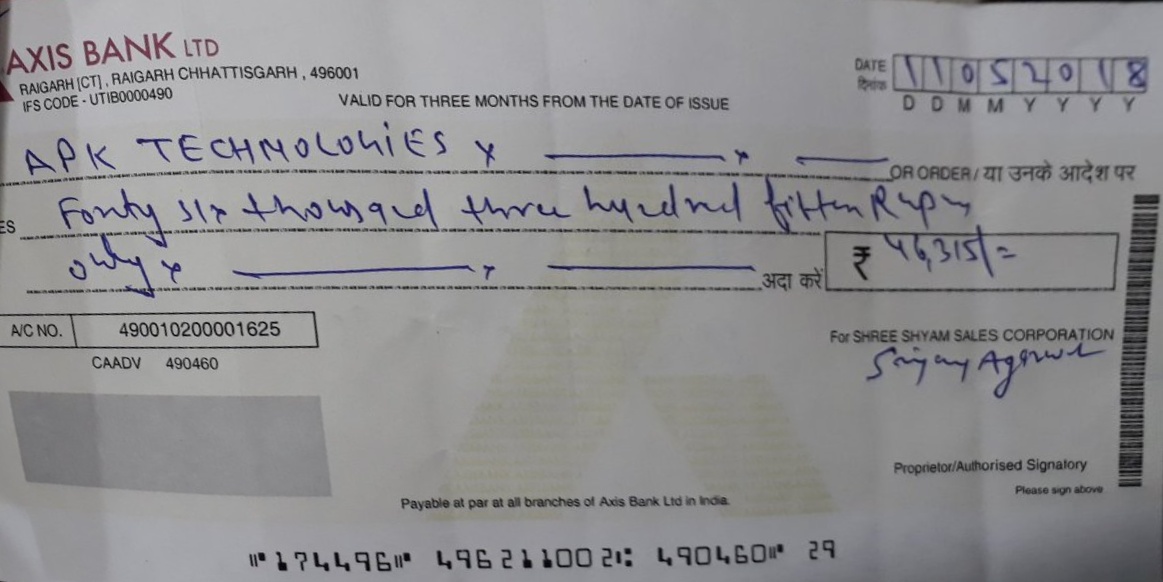 AXIS BANK LTD
RAIGARH [CT], RAIGARH CHHATTISGARH, 496001
IFS CODE - UTIB0000490
VALID FOR THREE MONTHS FROM THE DATE OF ISSUE
DATE 11052018
दिनांक D D M M Y Y Y Y
APK TECHNOLOGIES x ———— x —— OR ORDER / या उनके आदेश पर
ES Forty six thousand three hundred fifteen Rupees
only x ———— x ———— अदा करें ₹ 46,315/=
A/C NO. 490010200001625
CAADV 490460
For SHREE SHYAM SALES CORPORATION
Agarwal
Proprietor/Authorised Signatory
Please sign above
Payable at par at all branches of Axis Bank Ltd in India.
⑈174496⑈ 496211002⑆ 490460⑈ 29